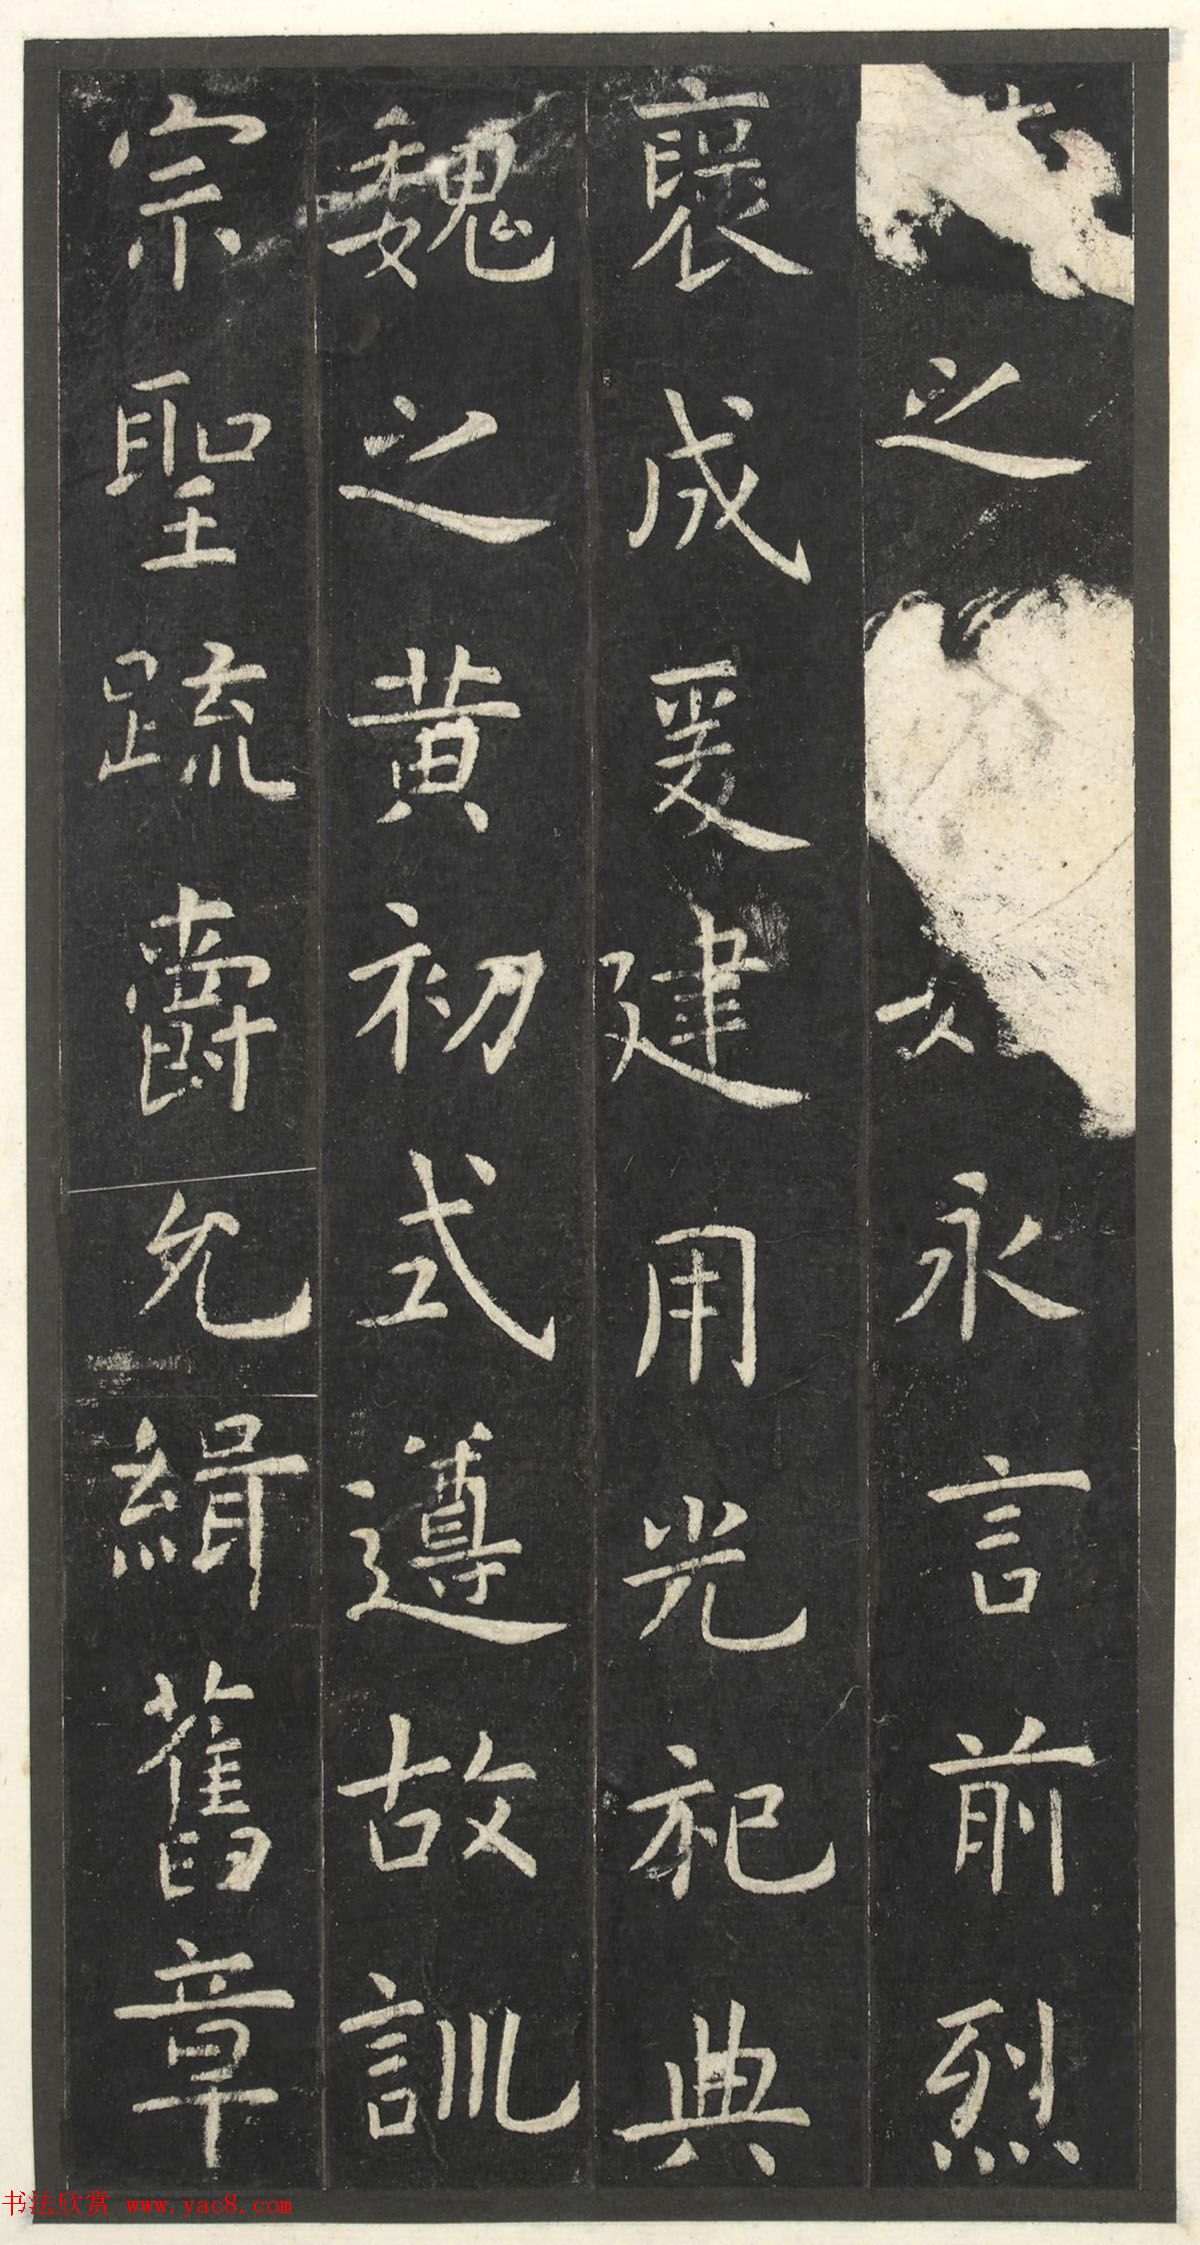 之永言前烈
褒成爰建用光祀典
魏之黄初式遵故訓
宗聖疏爵允緝舊章
书法欣赏 www.yac8.com